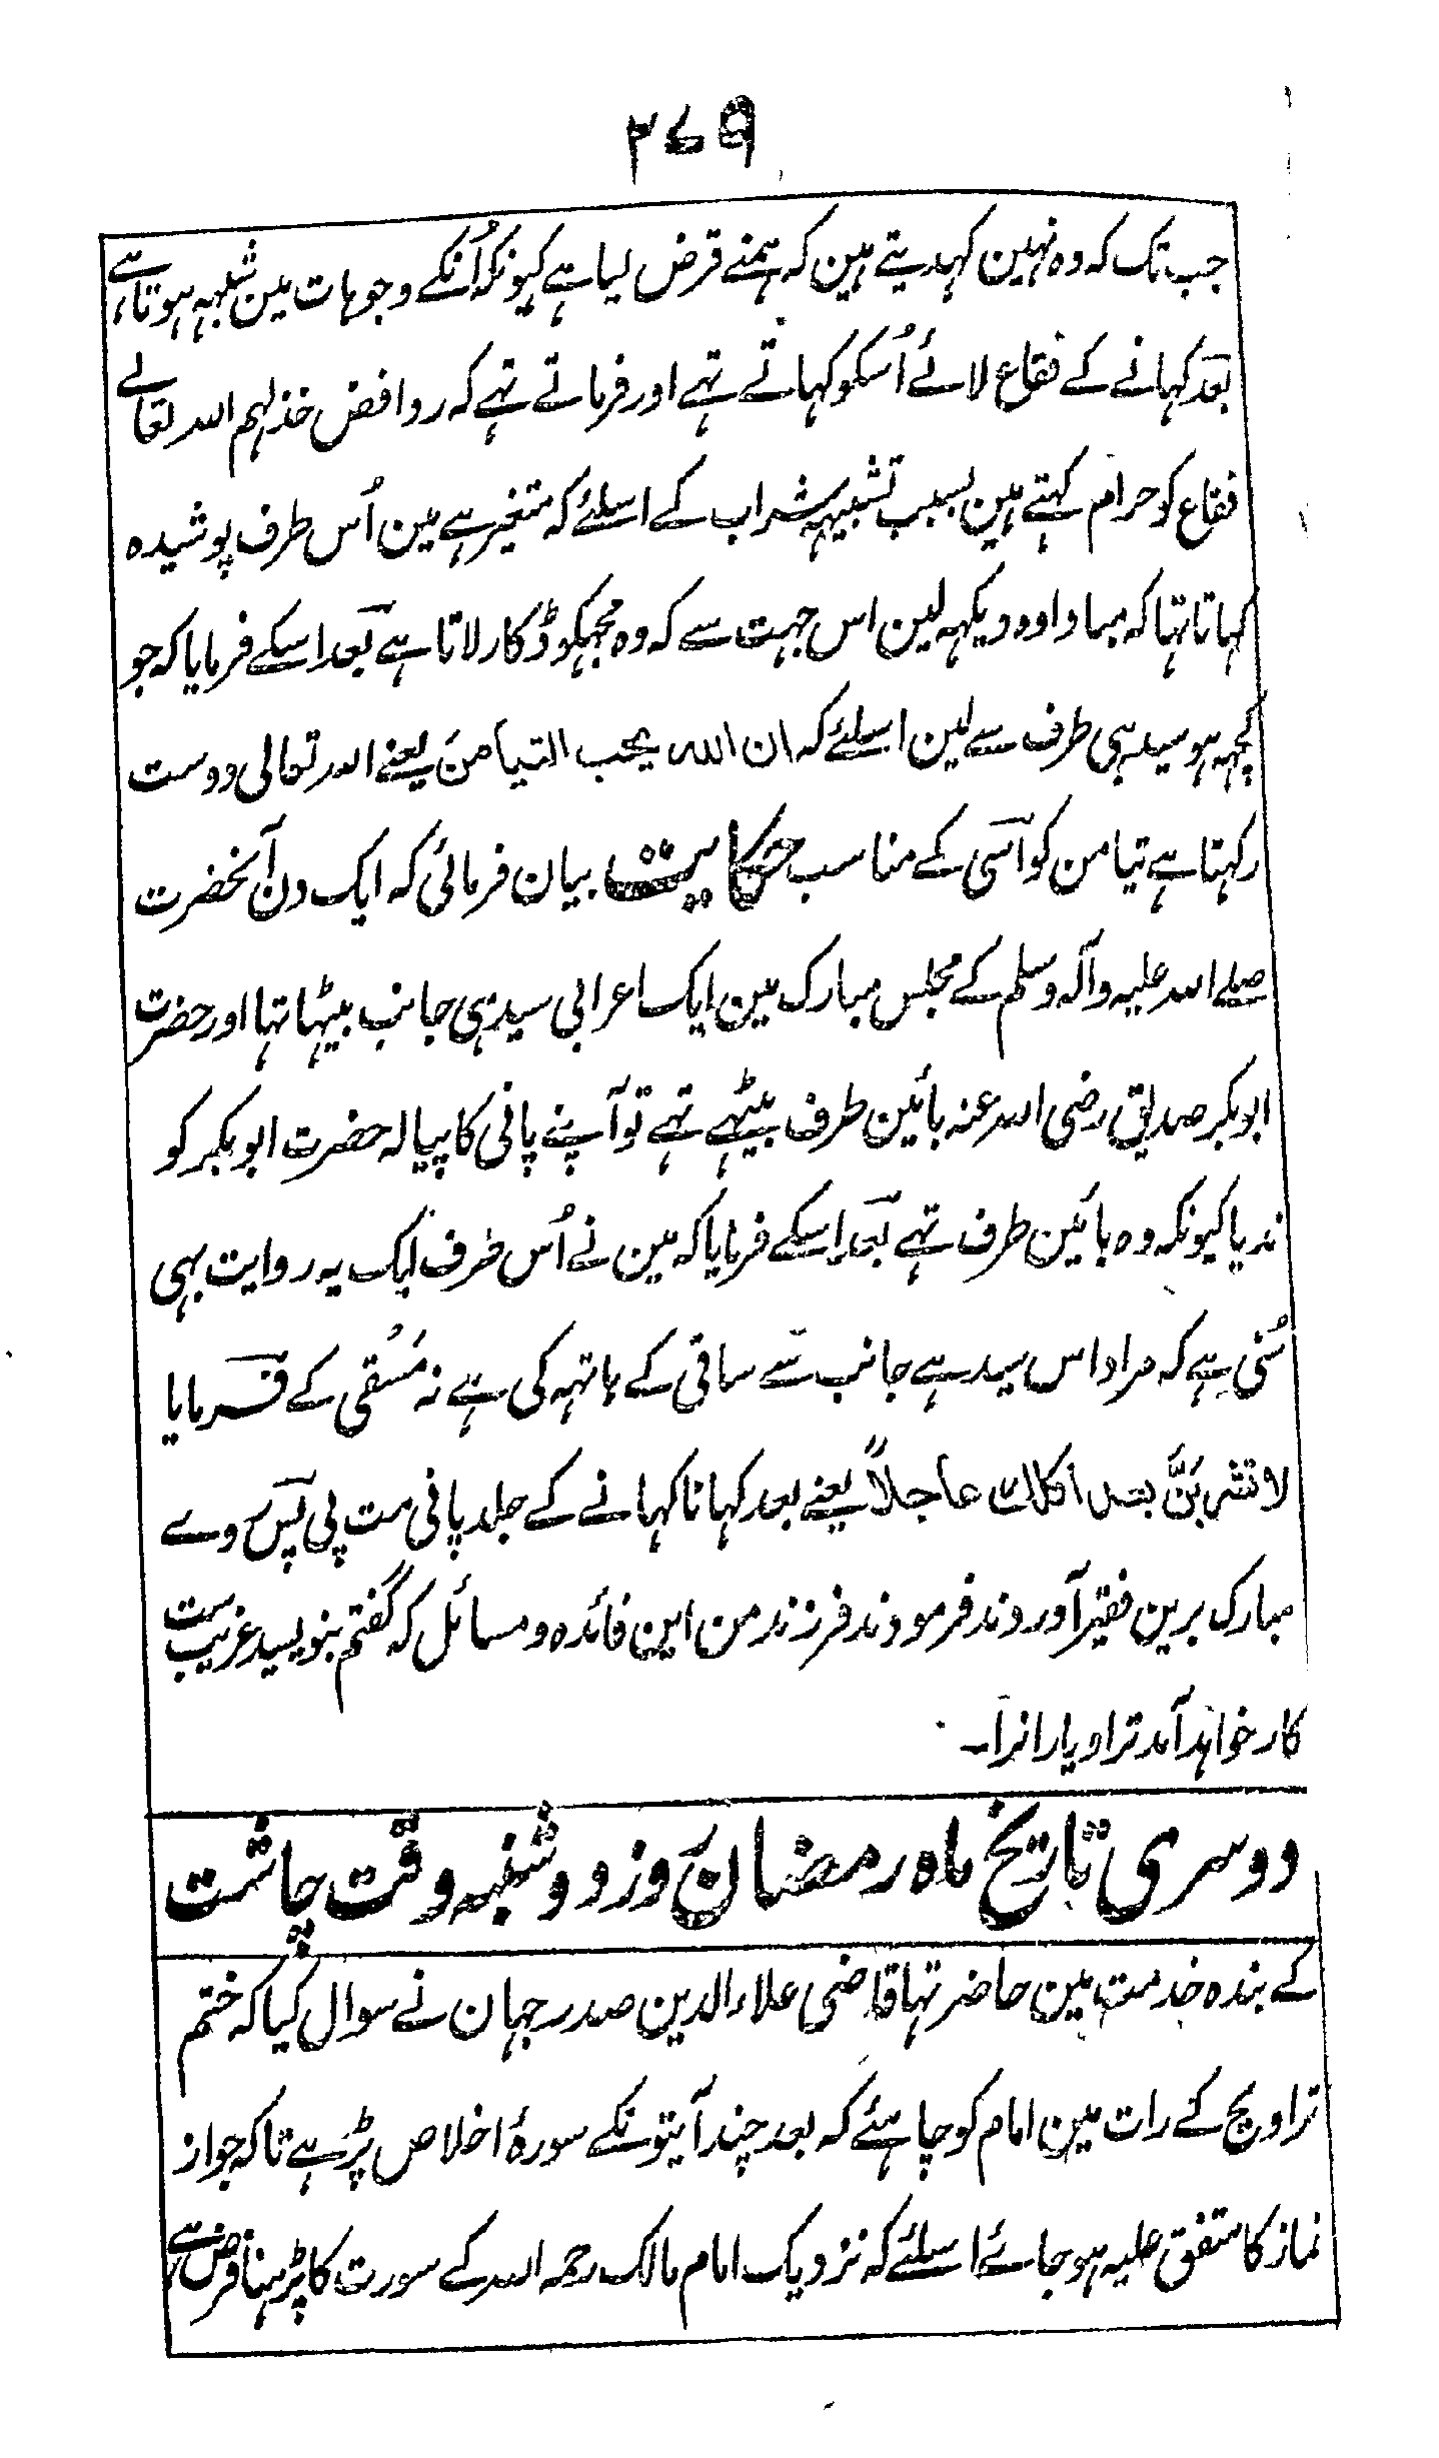 ۳۷۹
جب تک کہ وہ نہین کہدیتے ہین کہ ہمنے قرض لیا ہے کیونکہ اُنکے وجوہات مین شبہہ ہوتا ہے
بعد کہانے کے فقاع لائے اُسکو کہاتے تہے اور فرماتے تہے کہ روافض خذلہم اللہ تعالےٰ
فقاع کو حرام کہتے ہین بسبب تشبیہہ شراب کے اسلئے کہ متغیر ہے مین اُس طرف پوشیدہ
کہاتا تہا کہ مبادا وہ دیکہہ لین اس جہت سے کہ وہ مجہکو ڈکار لاتا ہے بعد اسکے فرمایا کہ جو
کچہہ ہو سیدہی طرف سے لین اسلئے کہ ان اللہ یحب التیامن یعنے اللہ تعالی دوست
رکہتا ہے تیامن کو اسی کے مناسب حکایت بیان فرمائی کہ ایک دن آنحضرت
صلے اللہ علیہ وآلہ وسلم کے مجلس مبارک مین ایک اعرابی سیدہی جانب بیٹہا تہا اور حضرت
ابوبکر صدیق رضی اللہ عنہ بائین طرف بیٹہے تہے تو آپنے پانی کا پیالہ حضرت ابوبکر کو
ندیا کیونکہ وہ بائین طرف تہے بعد اسکے فرمایا کہ مین نے اُس طرف ایک یہ روایت بہی
سُنی ہے کہ مراد اس سیدہے جانب سے ساقی کے ہاتہہ کی ہے نہ مُسقی کے فرمایا
لا تشربنَّ بعد اکلک عاجلاً یعنے بعد کہانا کہانے کے جلد پانی مت پی پس روے
مبارک برین فقیر آوردند فرمودند فرزند من این فائدہ و مسائل کہ گفتم بنویسید غریب ست
کار خواہد آمد ترا و یاران را۔
دوسری تاریخ ماہ رمضان روز دوشنبہ وقت چاشت
کے بندہ خدمت مین حاضر تہا قاضی علاء الدین صدر جہان نے سوال کیا کہ ختم
تراویح کے رات مین امام کو چاہئے کہ بعد چند آیتونکے سورۂ اخلاص پڑہے تاکہ جواز
نماز کا متفق علیہ ہو جائے اسلئے کہ نزدیک امام مالک رحمہ اللہ کے سورت کا پڑہنا فرض ہے